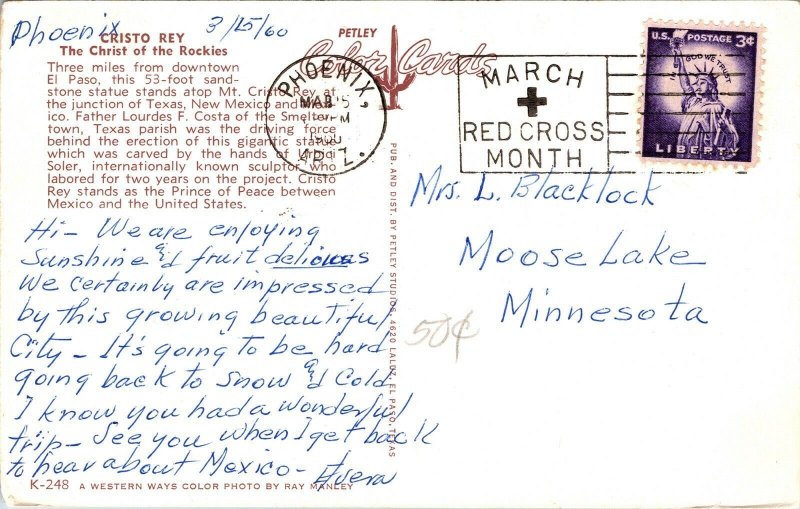 Phoenix 3/15/60
CRISTO REY
The Christ of the Rockies
Three miles from downtown
El Paso, this 53-foot sand-
stone statue stands atop Mt. Cristo Rey at
the junction of Texas, New Mexico and Mex-
ico. Father Lourdes F. Costa of the Smelter-
town, Texas parish was the driving force
behind the erection of this gigantic statue
which was carved by the hands of Urbici
Soler, internationally known sculptor who
labored for two years on the project. Cristo
Rey stands as the Prince of Peace between
Mexico and the United States.
Hi- We are enjoying
Sunshine and fruit delicious
We certainly are impressed
by this growing beautiful
City - It's going to be hard
going back to Snow and Cold
I know you had a wonderful
trip - See you when I get back
to hear about Mexico -
K-248 A WESTERN WAYS COLOR PHOTO BY RAY MANLEY
PETLEY
Color Cards
PUB. AND DIST. BY PETLEY STUDIOS, 4620 LALUZ, EL PASO, TEXAS
PHOENIX,
MAR 15
PM
1960
ARIZ.
MARCH
RED CROSS
MONTH
U.S. POSTAGE 3¢
IN GOD WE TRUST
LIBERTY
Mrs. L. Blacklock
Moose Lake
Minnesota
50¢